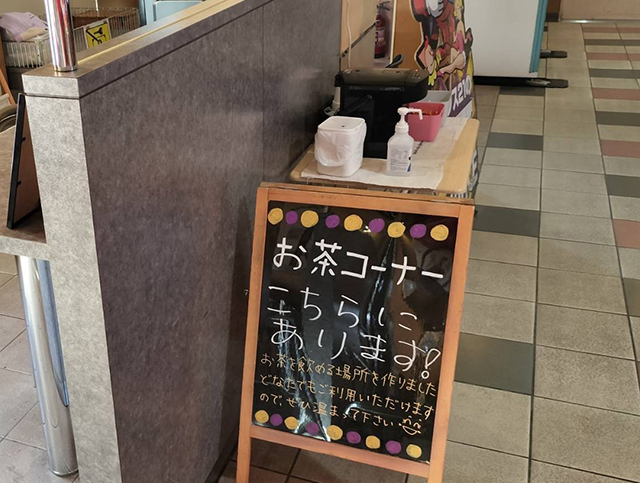 お茶コーナー
こちらに
あります!
お茶を飲める場所を作りました
どなたでもご利用いただけます
ので、ぜひ温まって下さい